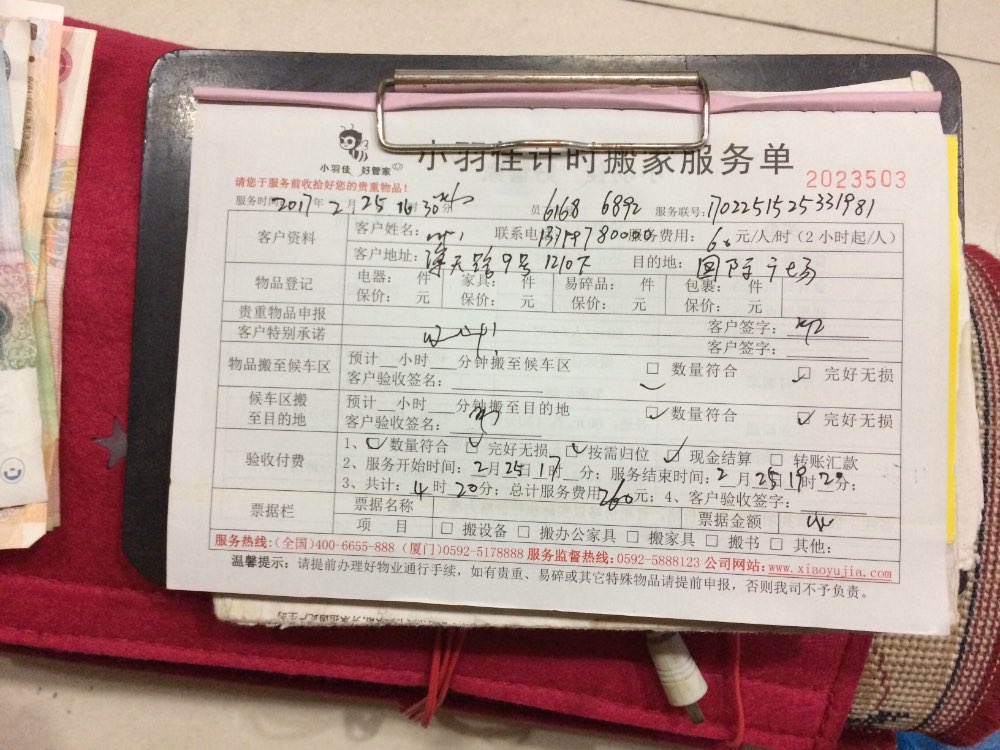 小羽佳 好管家
小羽佳计时搬家服务单
2023503
请您于服务前收拾好您的贵重物品！
服务时间2017年2月25 时30分 员 6168 6892 服务联号:1702251525331981
客户资料
客户姓名: 联系电 服务费用: 元/人/时(2小时起/人)
客户地址: 9号 1210下 目的地: 国际广场
物品登记
电器: 件 家具: 件 易碎品: 件 包裹: 件
保价: 元 保价: 元 保价: 元 保价: 元
贵重物品申报 客户签字:
客户特别承诺 客户签字:
物品搬至候车区
预计__小时___分钟搬至候车区 □ 数量符合 ☑ 完好无损
客户验收签名:
候车区搬至目的地
预计__小时___分钟搬至目的地 ☑ 数量符合 ☑ 完好无损
客户验收签名:
验收付费
1、☑ 数量符合 ☑ 完好无损 ☑ 按需归位 ☑ 现金结算 □ 转账汇款
2、服务开始时间: 2月25日17时 分; 服务结束时间: 2月25日19时20分;
3、共计: 4时20分; 总计服务费用260元; 4、客户验收签字:
票据栏
票据名称 票据金额
项 目 □ 搬设备 □ 搬办公家具 □ 搬家具 □ 搬书 □ 其他:
服务热线:(全国)400-6655-888 (厦门)0592-5178888 服务监督热线:0592-5888123 公司网站:www.xiaoyujia.com
温馨提示: 请提前办理好物业通行手续, 如有贵重、易碎或其它特殊物品请提前申报, 否则我司不予负责。